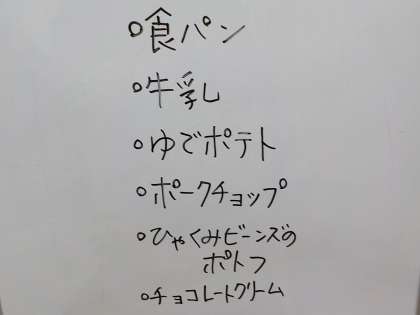 ○食パン
○牛乳
○ゆでポテト
○ポークチョップ
○ひゃくみビーンズの
ポトフ
○チョコレートクリーム